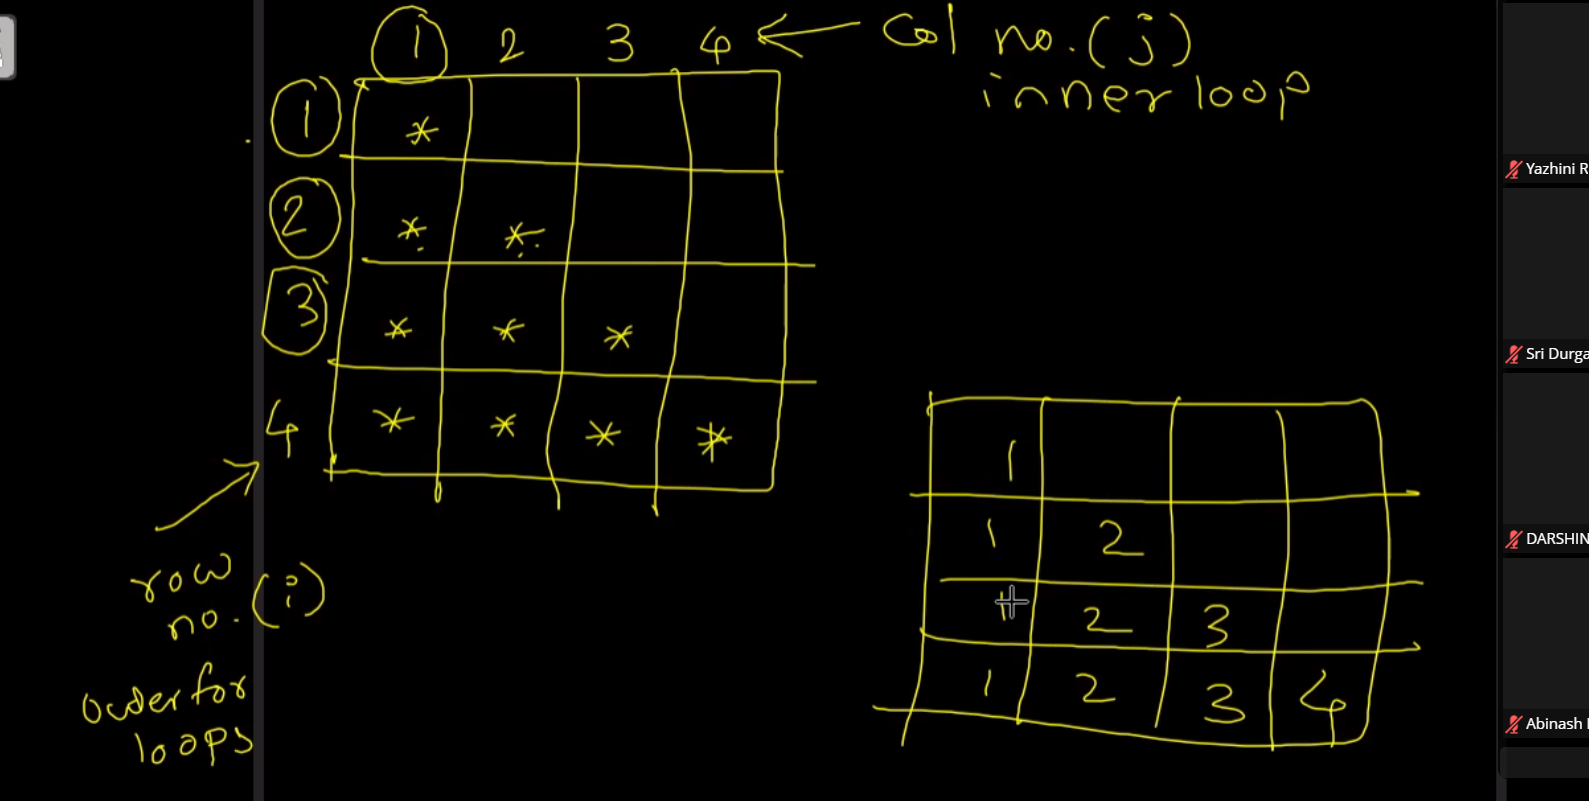 1 2 3 4 ← Col no. (j)
inner loop
1 *
2 * *
3 * * *
4 * * * *
row
no. (i)
outer for
loops
1
1 2
1 2 3
1 2 3 4
Yazhini R
Sri Durga
DARSHIN
Abinash